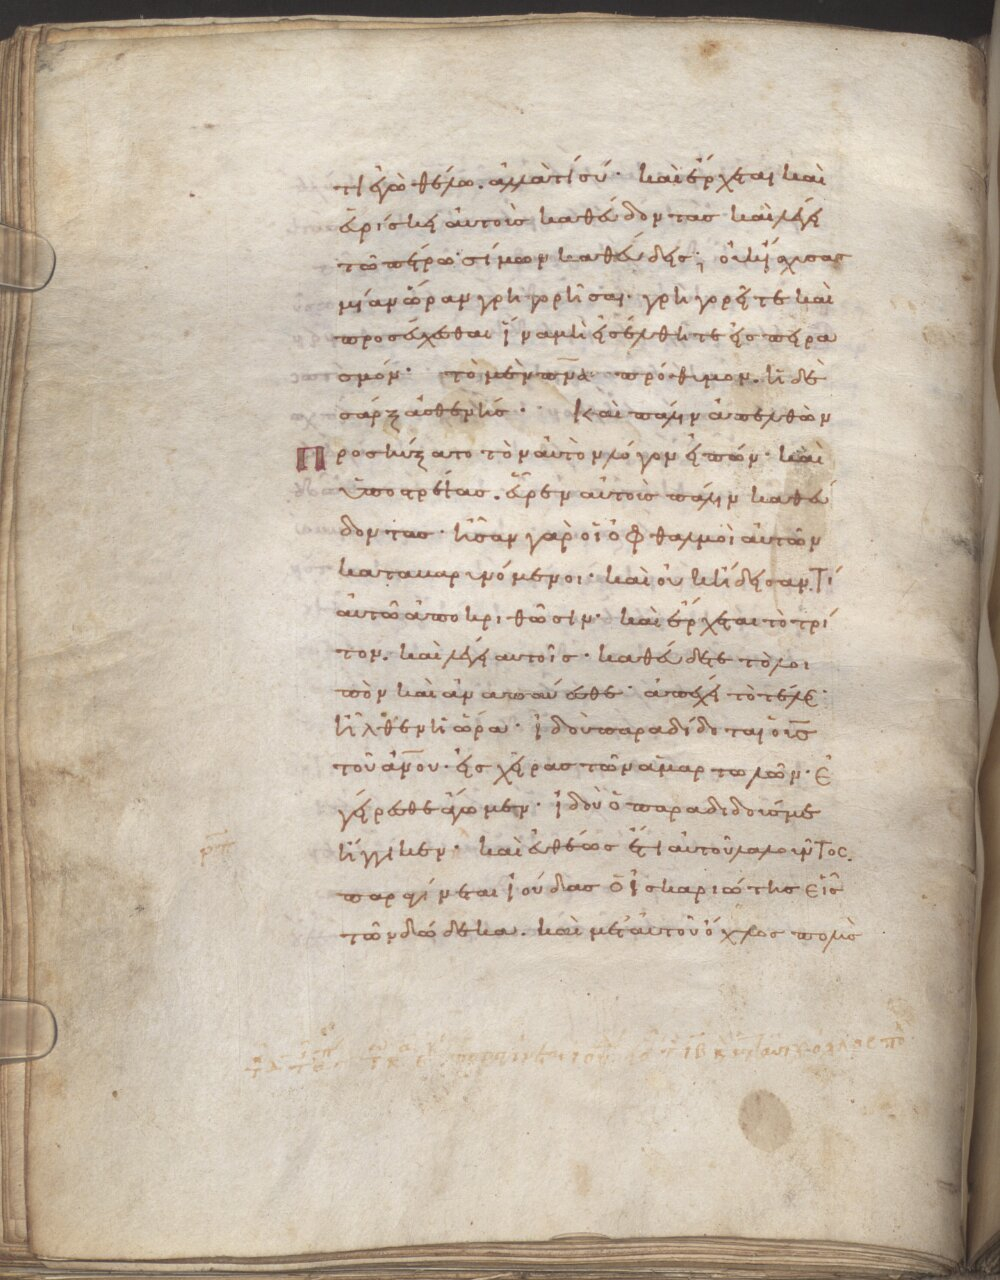 τί ἐγὼ θέλω. ἀλλὰ τί σύ· καὶ ἔρχεται καὶ
εὑρίσκει αὐτοὺς καθεύδοντας καὶ λέγει
τῶ πέτρω· σίμων καθεύδεις; οὐκ ἴσχυσας
μίαν ὥραν γρηγορῆσαι· γρηγορεῖτε καὶ
προσεύχεσθαι ἵνα μὴ εἰσέλθητε εἰς πειρα
σμόν· τὸ μὲν πν̅α· πρόθυμον. ἡ δὲ
σὰρξ ἀσθενής· Καὶ πάλιν ἀπελθὼν
Προσηύξατο τὸν αὐτὸν λόγον εἰπών· καὶ
ὑποστρέψας. εὗρεν αὐτοὺς πάλιν καθεύ
δοντας· ἦσαν γὰρ οἱ ὀφθαλμοὶ αὐτῶν
καταβαρυνόμενοι· καὶ οὐκ ἤδεισαν τί
αὐτῶ ἀποκριθῶσιν· καὶ ἔρχεται τὸ τρί
τον. καὶ λέγει αυτοῖς· καθεύδετε τὸ λοι
πὸν καὶ ἀναπαύεσθε· ἀπέχει τὸ τέλ
ἦλθεν ἡ ὥρα· ἰδοὺ παραδίδοται ὁ υἱς̅
τοῦ ἀν̅ου· εἰς χεῖρας τῶν ἁμαρτωλῶν· Ἐ
γείρεσθε ἄγωμεν· ἰδοὺ ὁ παραδιδούς με
ἤγγικεν· καὶ εὐθέως ἔτι αὐτοῦ λαλοῦντος.
παραγίνεται ἰούδας ὁ ἰσκαριώτης εἷς
τῶν δώδεκα. καὶ μετ' αὐτοῦ ὄχλος πολὺς